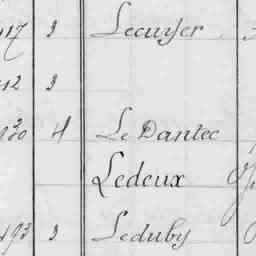 417 3 Lecuyer
12 3
4 Le Dantec
Ledeux
493 3 Leduby